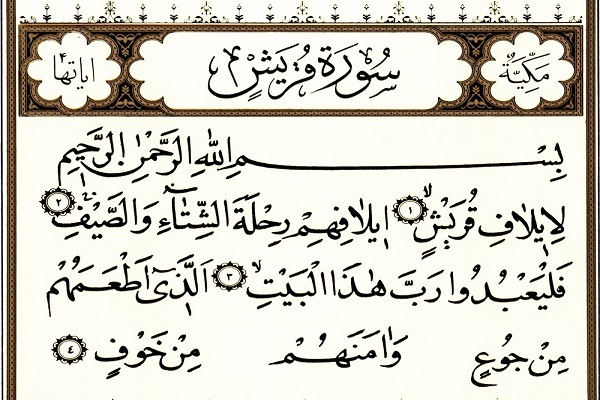 مَكِّيَّةٌ سُورَةُ قُرَيْشٍ اٰيَاتُهَا ٤
بِسْمِ اللّٰهِ الرَّحْمٰنِ الرَّحٖيمِ
لِاٖيلَافِ قُرَيْشٍۙ ﴿١﴾ اٖيلَافِهِمْ رِحْلَةَ الشِّتَٓاءِ وَالصَّيْفِۚ ﴿٢﴾
فَلْيَعْبُدُوا رَبَّ هٰذَا الْبَيْتِۙ ﴿٣﴾ اَلَّذٖٓى اَطْعَمَهُمْ
مِنْ جُوعٍ وَاٰمَنَهُمْ مِنْ خَوْفٍ ﴿٤﴾